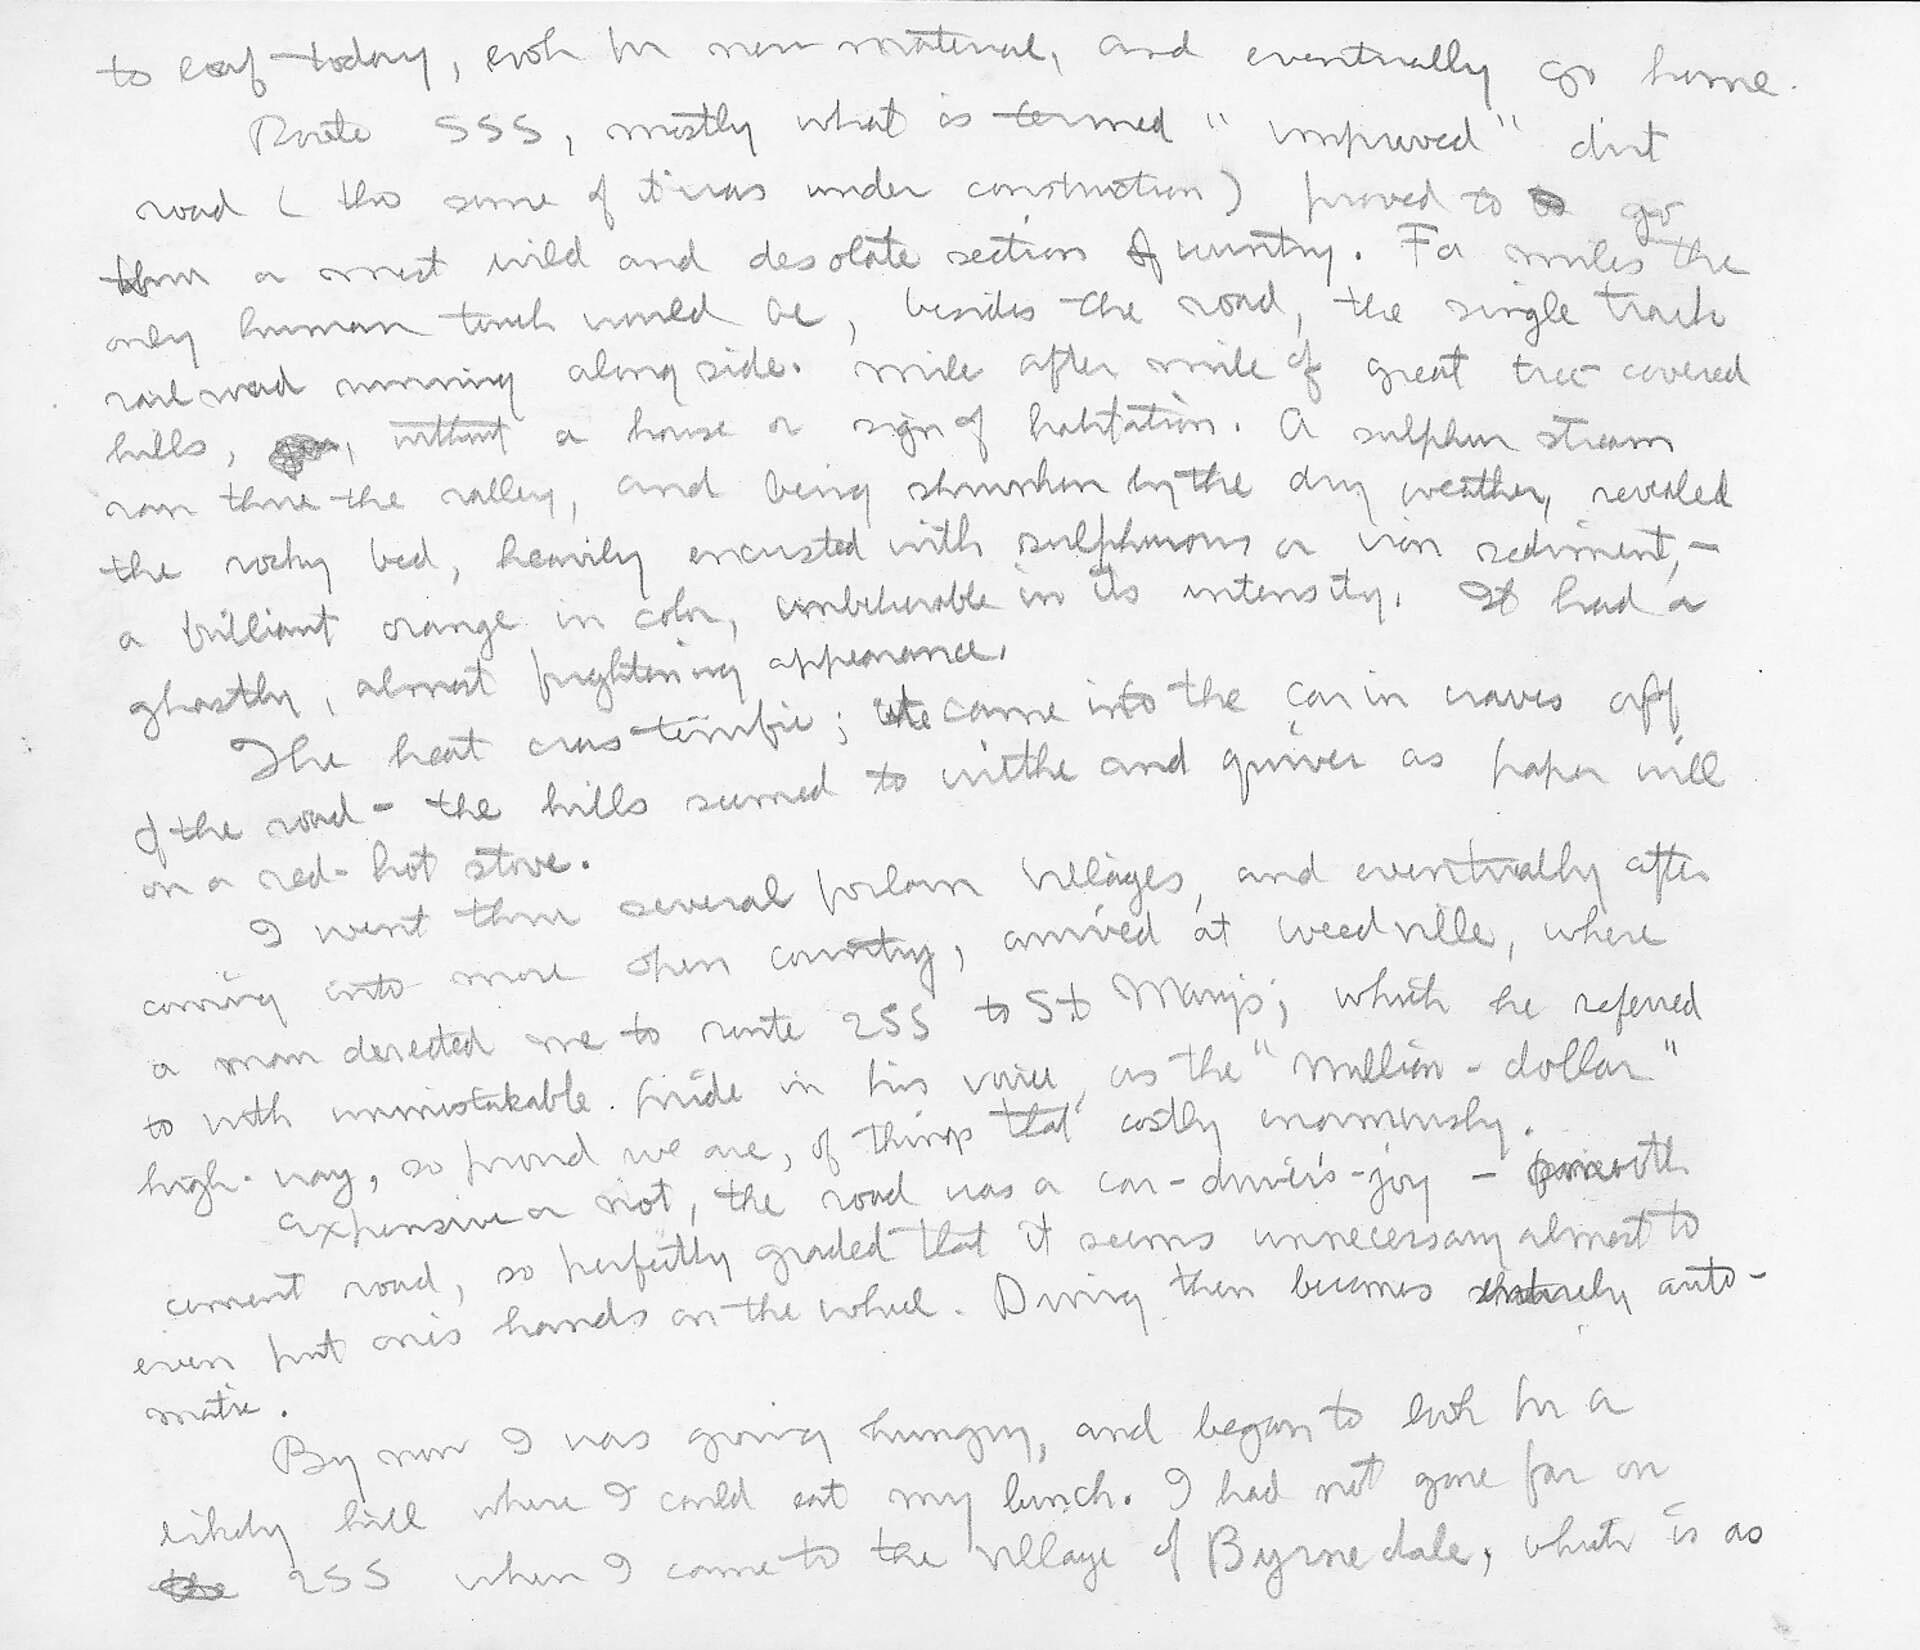 to loaf today, look for new material, and eventually go home.
Route 555, mostly what is termed "improved" dirt
road (tho some of it was under construction) proved to go
thru a most wild and desolate section of country. For miles the
only human touch would be, besides the road, the single track
railroad running along side. Mile after mile of great tree-covered
hills, without a house or sign of habitation. A sulphur stream
ran thru the valley, and being shrunken by the dry weather, revealed
the rocky bed, heavily encrusted with sulphurous or iron sediment, -
a brilliant orange in color, unbelievable in its intensity. It had a
ghostly, almost frightening appearance.
The heat was terrific; it came into the car in waves off
of the road - the hills seemed to writhe and quiver as paper will
on a red-hot stove.
I went thru several forlorn villages, and eventually after
coming into more open country, arrived at Weedville, where
a man derected me to route 255 to St Marys; which he referred
to with unmistakable pride in his voice, as the "million-dollar"
high-way, so proud we are, of things that costly enormously.
Expensive or not, the road was a car-driver's-joy - smooth
cement road, so perfectly graded that it seems unnecessary almost to
even put one's hands on the wheel. Driving then becomes entirely auto-
matic.
By now I was going hungry, and began to look for a
likely hill where I could eat my lunch. I had not gone far on
255 when I came to the village of Byrnedale, which is as